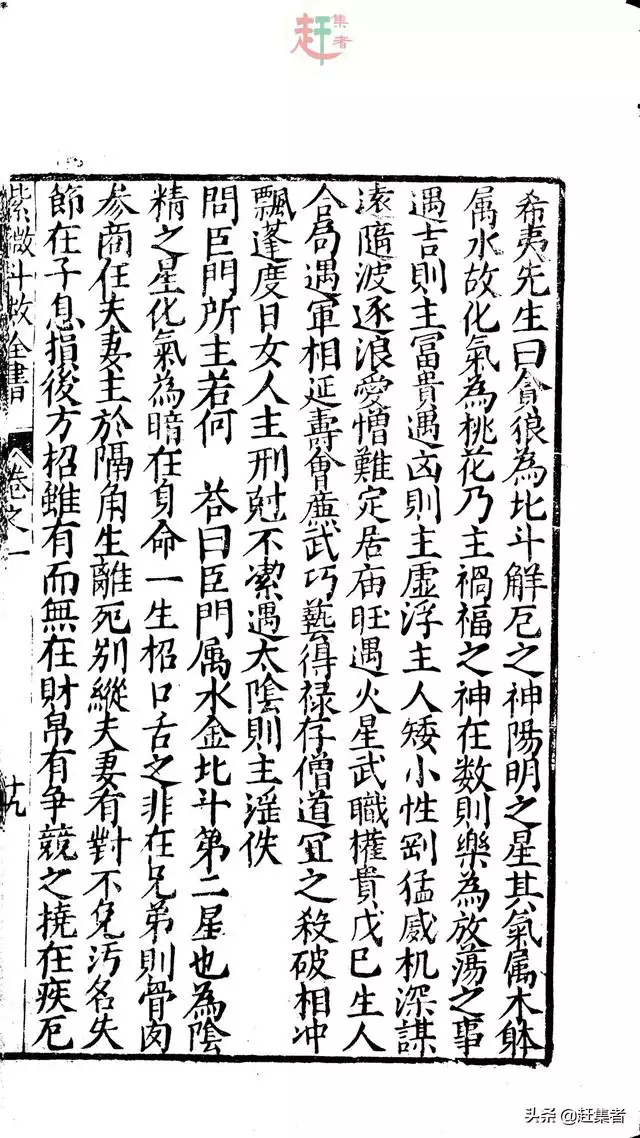 赶集者
希夷先生曰貪狼為北斗解厄之神陽明之星其氣属木躰
属水故化氣為桃花乃主禍福之神在数則樂為放蕩之事
遇吉則主冨貴遇凶則主虛浮主人矮小性剛猛威机深謀
遠隨波逐浪愛憎難定居庙旺遇火星武職權貴戊巳生人
合局遇軍相延壽會廉武巧藝得禄存僧道宜之殺破相冲
飄蓬度日女人主刑尅不潔遇太陰則主淫佚
問巨門所主若何　荅曰巨門属水金北斗第二星也為陰
精之星化氣為暗在身命一生招口舌之非在兄弟則骨肉
参商在夫妻主於隔角生離死别縱夫妻有對不免污名失
節在子息損後方招雖有而無在財帛有争競之撓在疾厄
紫微斗数全書　卷之一　十九
头条 @赶集者